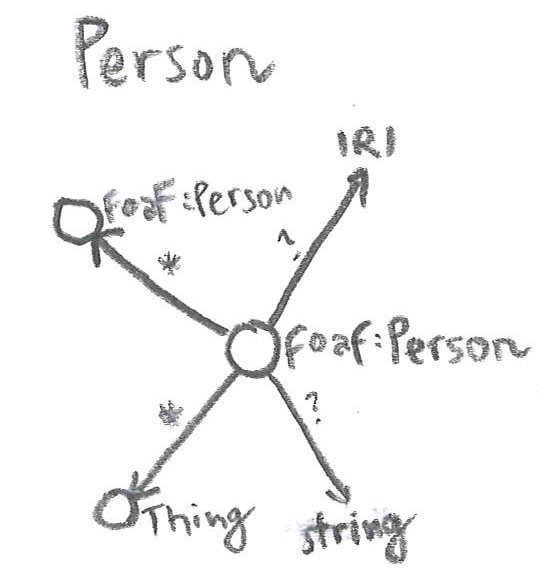 Person
IRI
foaf:Person
?
*
foaf:Person
?
*
Thing
string